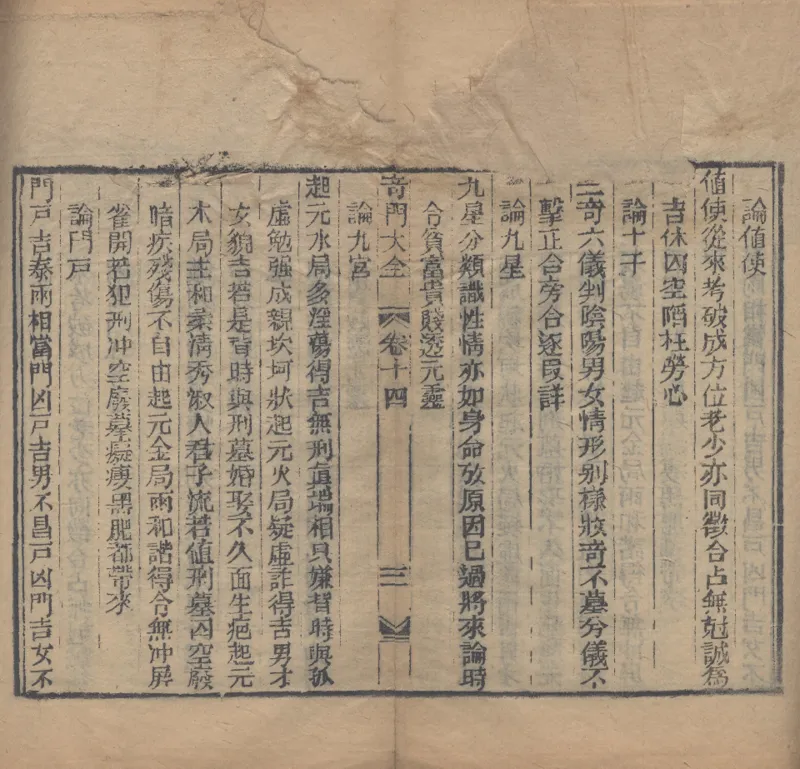 論値使
値使從來考破成方位老少亦同徵合占無尅誠爲
吉休囚空陷枉勞心
論十干
三奇六儀判陰陽男女情形别樣妝竒不墓兮儀不
擊正合旁合逐叚詳
論九星
九星分類識性情亦如身命攷原因已過將來論時
令貧富貴賤透元靈
竒門大全 卷十四 三
論九宮
起元水局多淫蕩得吉無刑眞端相只嫌背時與孤
虛勉强成親坎坷狀起元火局疑虛詐得吉男才
女貌吉若是背時與刑墓婚娶不久面生疤起元
木局主和柔清秀淑人君子流若値刑墓囚空廢
暗疾殘傷不自由起元金局兩和諧得令無冲屏
雀開若犯刑冲空廢墓癡瘦黑肥都帶來
論門戸
門戸吉泰兩相當門凶戸吉男不昌戸凶門吉女不